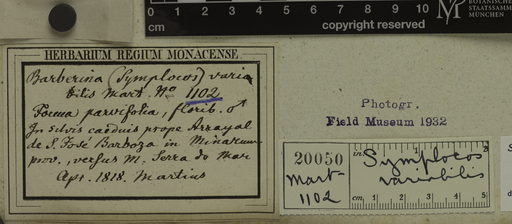 0 1 2 3 4 5 6 7 8 9 10
cm
copyright reserved
BOTANISCHE
STAATSSAMML
MÜNCHEN
HERBARIUM REGIUM MONACENSE
Barberina (Symplocos) varia
bilis Mart. No 1102
Forma parvifolia, florib.
In silvis caeduis prope Arrayal
de S. José Barboza in Minarum
prov., versus M. Serra do Mar
Apr. 1818. Martius
Photogr.
Field Museum 1932
20050
Mart
1102
in
Symplocos
variabilis
cm 1 2 3 4 5